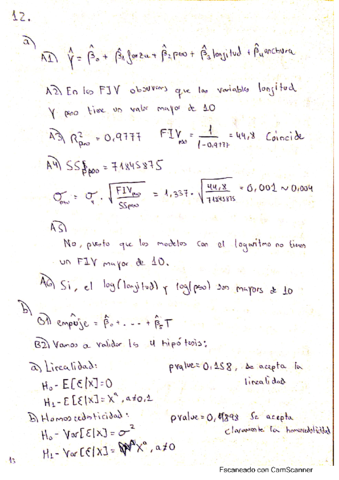 12.
a)
A1) Ŷ = β̂₀ + β̂₁ fuerza + β̂₂ peso + β̂₃ longitud + β̂₄ anchura
A2) En los FIV observamos que las variables longitud
y peso tiene un valor mayor de 10
A3) R²peso = 0,9777 FIVpeso = 1/(1-0,9777) = 44,8 Coincide
A4) SSpeso = 71845875
σpeso = σ · √(FIVpeso/SSpeso) = 1,337 · √(44,8/71845875) = 0,001 ~ 0.004
A5)
No, puesto que los modelos con el logaritmo no tienen
un FIV mayor de 10.
A6) Si, el log(longitud) y log(peso) son mayores de 10
b)
B1) empuje = β̂₀ + ... + β̂₅T
B2) Vamos a validar las 4 hipótesis:
a) Linealidad: pvalue = 0,158, se acepta la
H₀ - E[ε|X] = 0 linealidad
H₁ - E[ε|X] = Xᵃ, a≠0,1
b) Homoscedasticidad: pvalue = 0,4898 Se acepta
H₀ - Var[ε|X] = σ² claramente la homocedasticidad
H₁ - Var[ε|X] = Xᵃ, a≠0
15
Escaneado con CamScanner